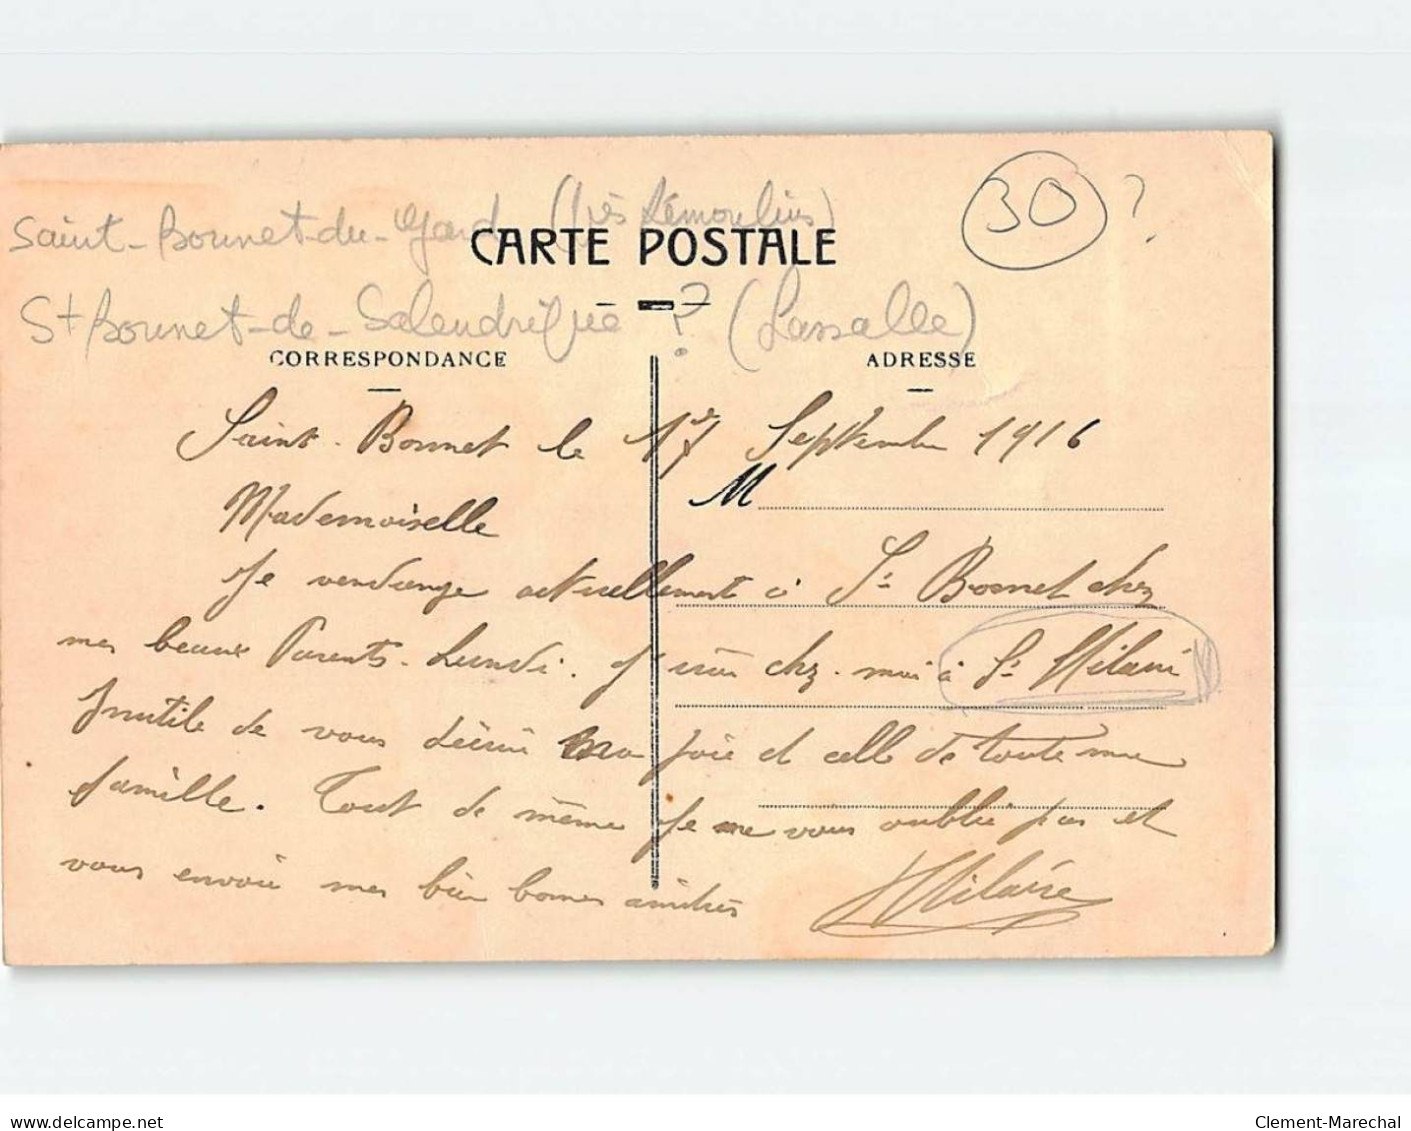 30 ?
Saint-Bonnet-du-Gard (près Rémoulins)
CARTE POSTALE
St Bonnet-de-Salendrique ? (Lassalle)
CORRESPONDANCE
ADRESSE
Saint-Bonnet le 17 Septembre 1916
M
Mademoiselle
Je vendange actuellement à St Bonnet chez
mes beaux Parents. Lundi. J'irai chez moi à St Hilaire
Inutile de vous décrire ma joie et celle de toute ma
famille. Tout de même je ne vous oublie pas et
vous envoie mes bien bonnes amitiés
Hilaire
www.delcampe.net
Clement-Marechal